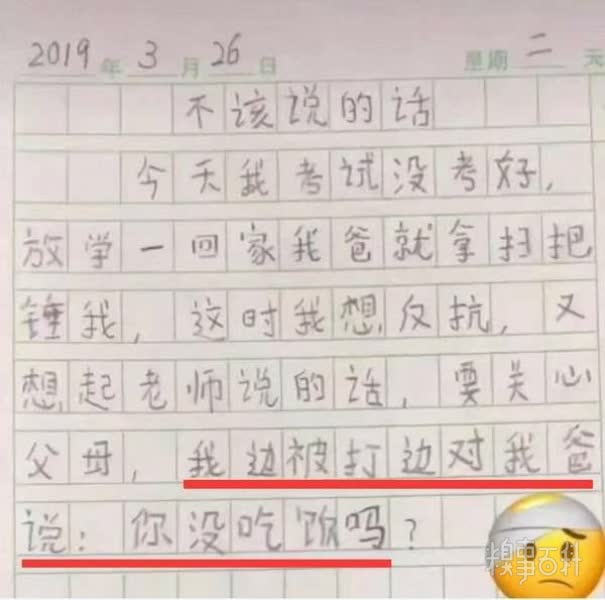 2019年3月26日 星期二 天
不该说的话
今天我考试没考好，
放学一回家我爸就拿扫把
锤我，这时我想反抗，又
想起老师说的话，要关心
父母，我边被打边对我爸
说：你没吃饭吗？
糗事百科